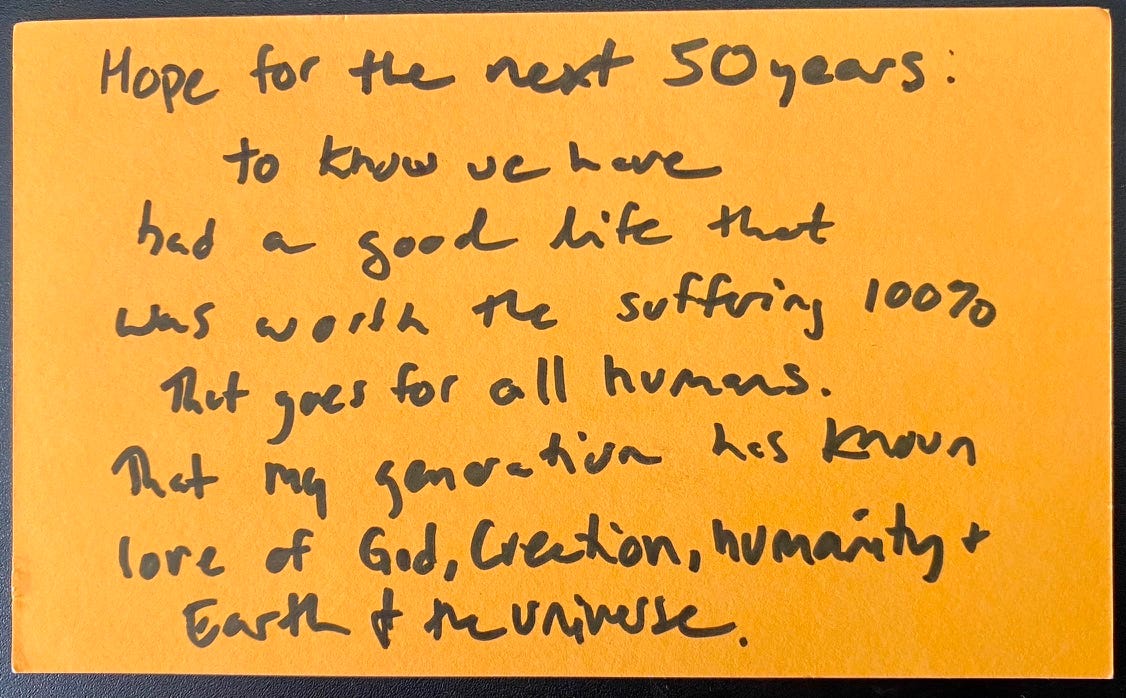 Hope for the next 50 years:
to know we have
had a good life that
was worth the suffering 100%
That goes for all humans.
That my generation has known
love of God, Creation, humanity +
Earth & the universe.